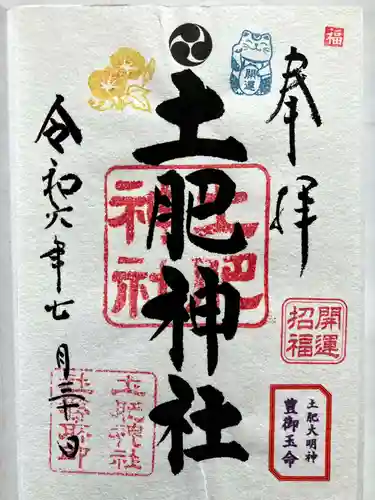 奉拝
福
開運
土肥神社
土肥神社
開運
招福
土肥大明神
豊御玉命
令和六年七月三十日
土肥神社